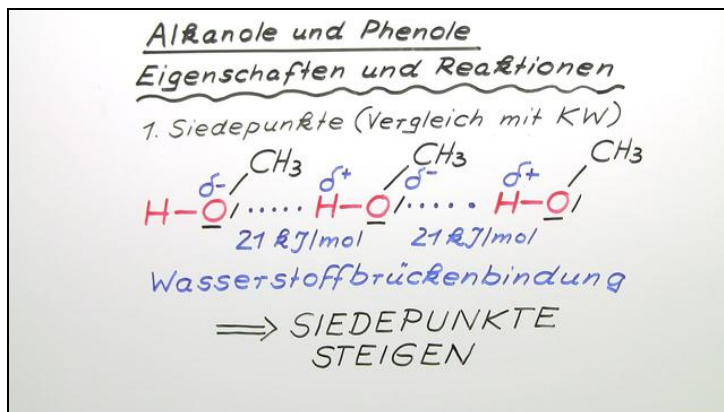 Alkanole und Phenole
Eigenschaften und Reaktionen
1. Siedepunkte (Vergleich mit KW)
CH3 CH3 CH3
δ- δ+ δ- δ+
H-O ..... H-O ..... H-O
21 kJ/mol 21 kJ/mol
Wasserstoffbrückenbindung
⟹ SIEDEPUNKTE
STEIGEN